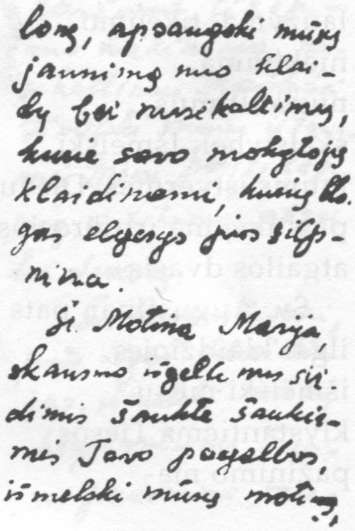 lonę, apsaugoki mūsų
jaunimą nuo klai-
dų bei nusikaltimų,
kurie savo mokytojų
klaidinami, kurių blo-
gas elgesys juos silp-
nina.
Ši Motina Marija
skausmo išgeltu mus šir-
dimis šauktė šaukia-
mės Tavo pagalbos,
išmelski mūsų motinų,